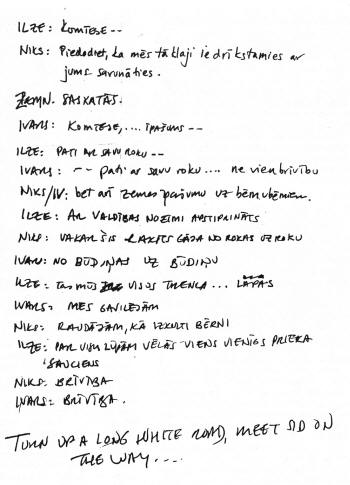 ILZE: KOMTESE --
NIKS: Piedodiet, ka mēs tā klaji iedrīkstamies ar
jums sarunāties.
ZEMN. SASKATĀS.
IVARS: KOMTESE, .... ĪPAŠUMS --
ILZE: PATI AR SAVU ROKU --
IVARS: -- pati ar savu roku .... ne vien brīvību
NIKS/IV: bet arī zemes īpašumu uz bērnubērniem.
ILZE: AR VALDĪBAS NOZĪMI APSTIPRINĀTS
NIKS: VAKAR ŠIS RAKSTS GĀJA NO ROKAS UZ ROKU
IVARS: NO BŪDIŅAS UZ BŪDIŅU
ILZE: tas mūs visus ... LĀPAS
IVARS: MĒS GAVILĒJĀM
NIKS: RAUDĀJĀM, KĀ IZKULTI BĒRNI
ILZE: PAR VISU LŪPĀM VĒLĀS VIENS VIENĪGS PRIEKA
SAUCIENS
NIKS: BRĪVĪBA
IVARS: BRĪVĪBA.
TURN UP A LONG WHITE ROAD, MEET SID ON
THE WAY....